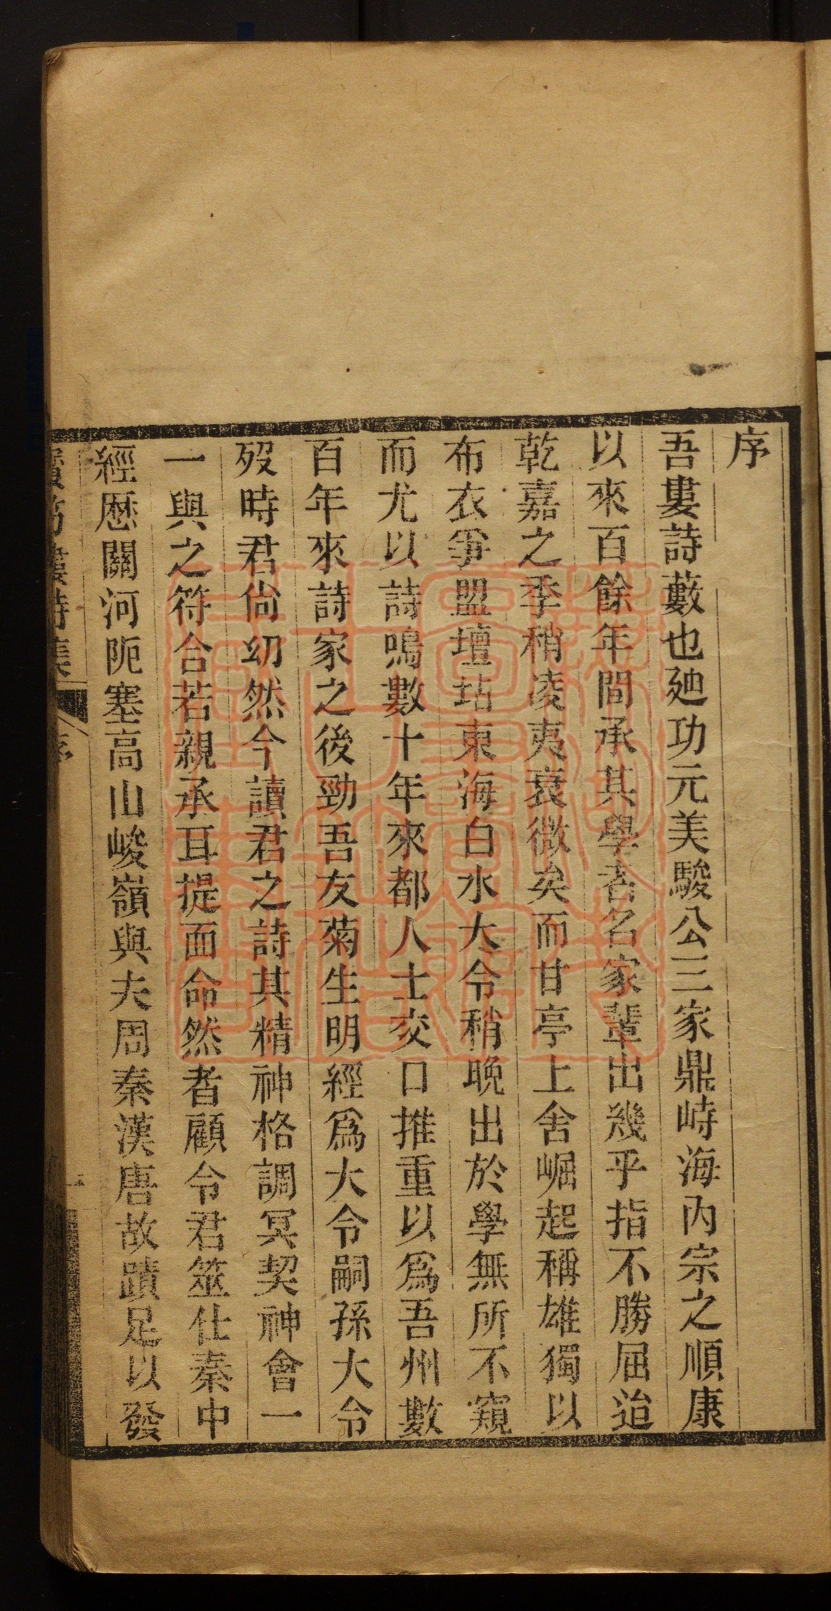 序
吾婁詩藪也廸功元美駿公三家鼎峙海內宗之順康
以來百餘年間承其學者名家輩出幾乎指不勝屈迨
乾嘉之季稍凌夷衰微矣而甘亭上舍崛起稱雄獨以
布衣爭盟壇坫東海白水大令稍晚出於學無所不窺
而尤以詩鳴數十年來都人士交口推重以爲吾州數
百年來詩家之後勁吾友菊生明經爲大令嗣孫大令
歿時君尙幼然今讀君之詩其精神格調冥契神會一
一與之符合若親承耳提面命然者顧令君筮仕秦中
經歷關河阨塞高山峻嶺與夫周秦漢唐故蹟足以發
樓詩集 序 一